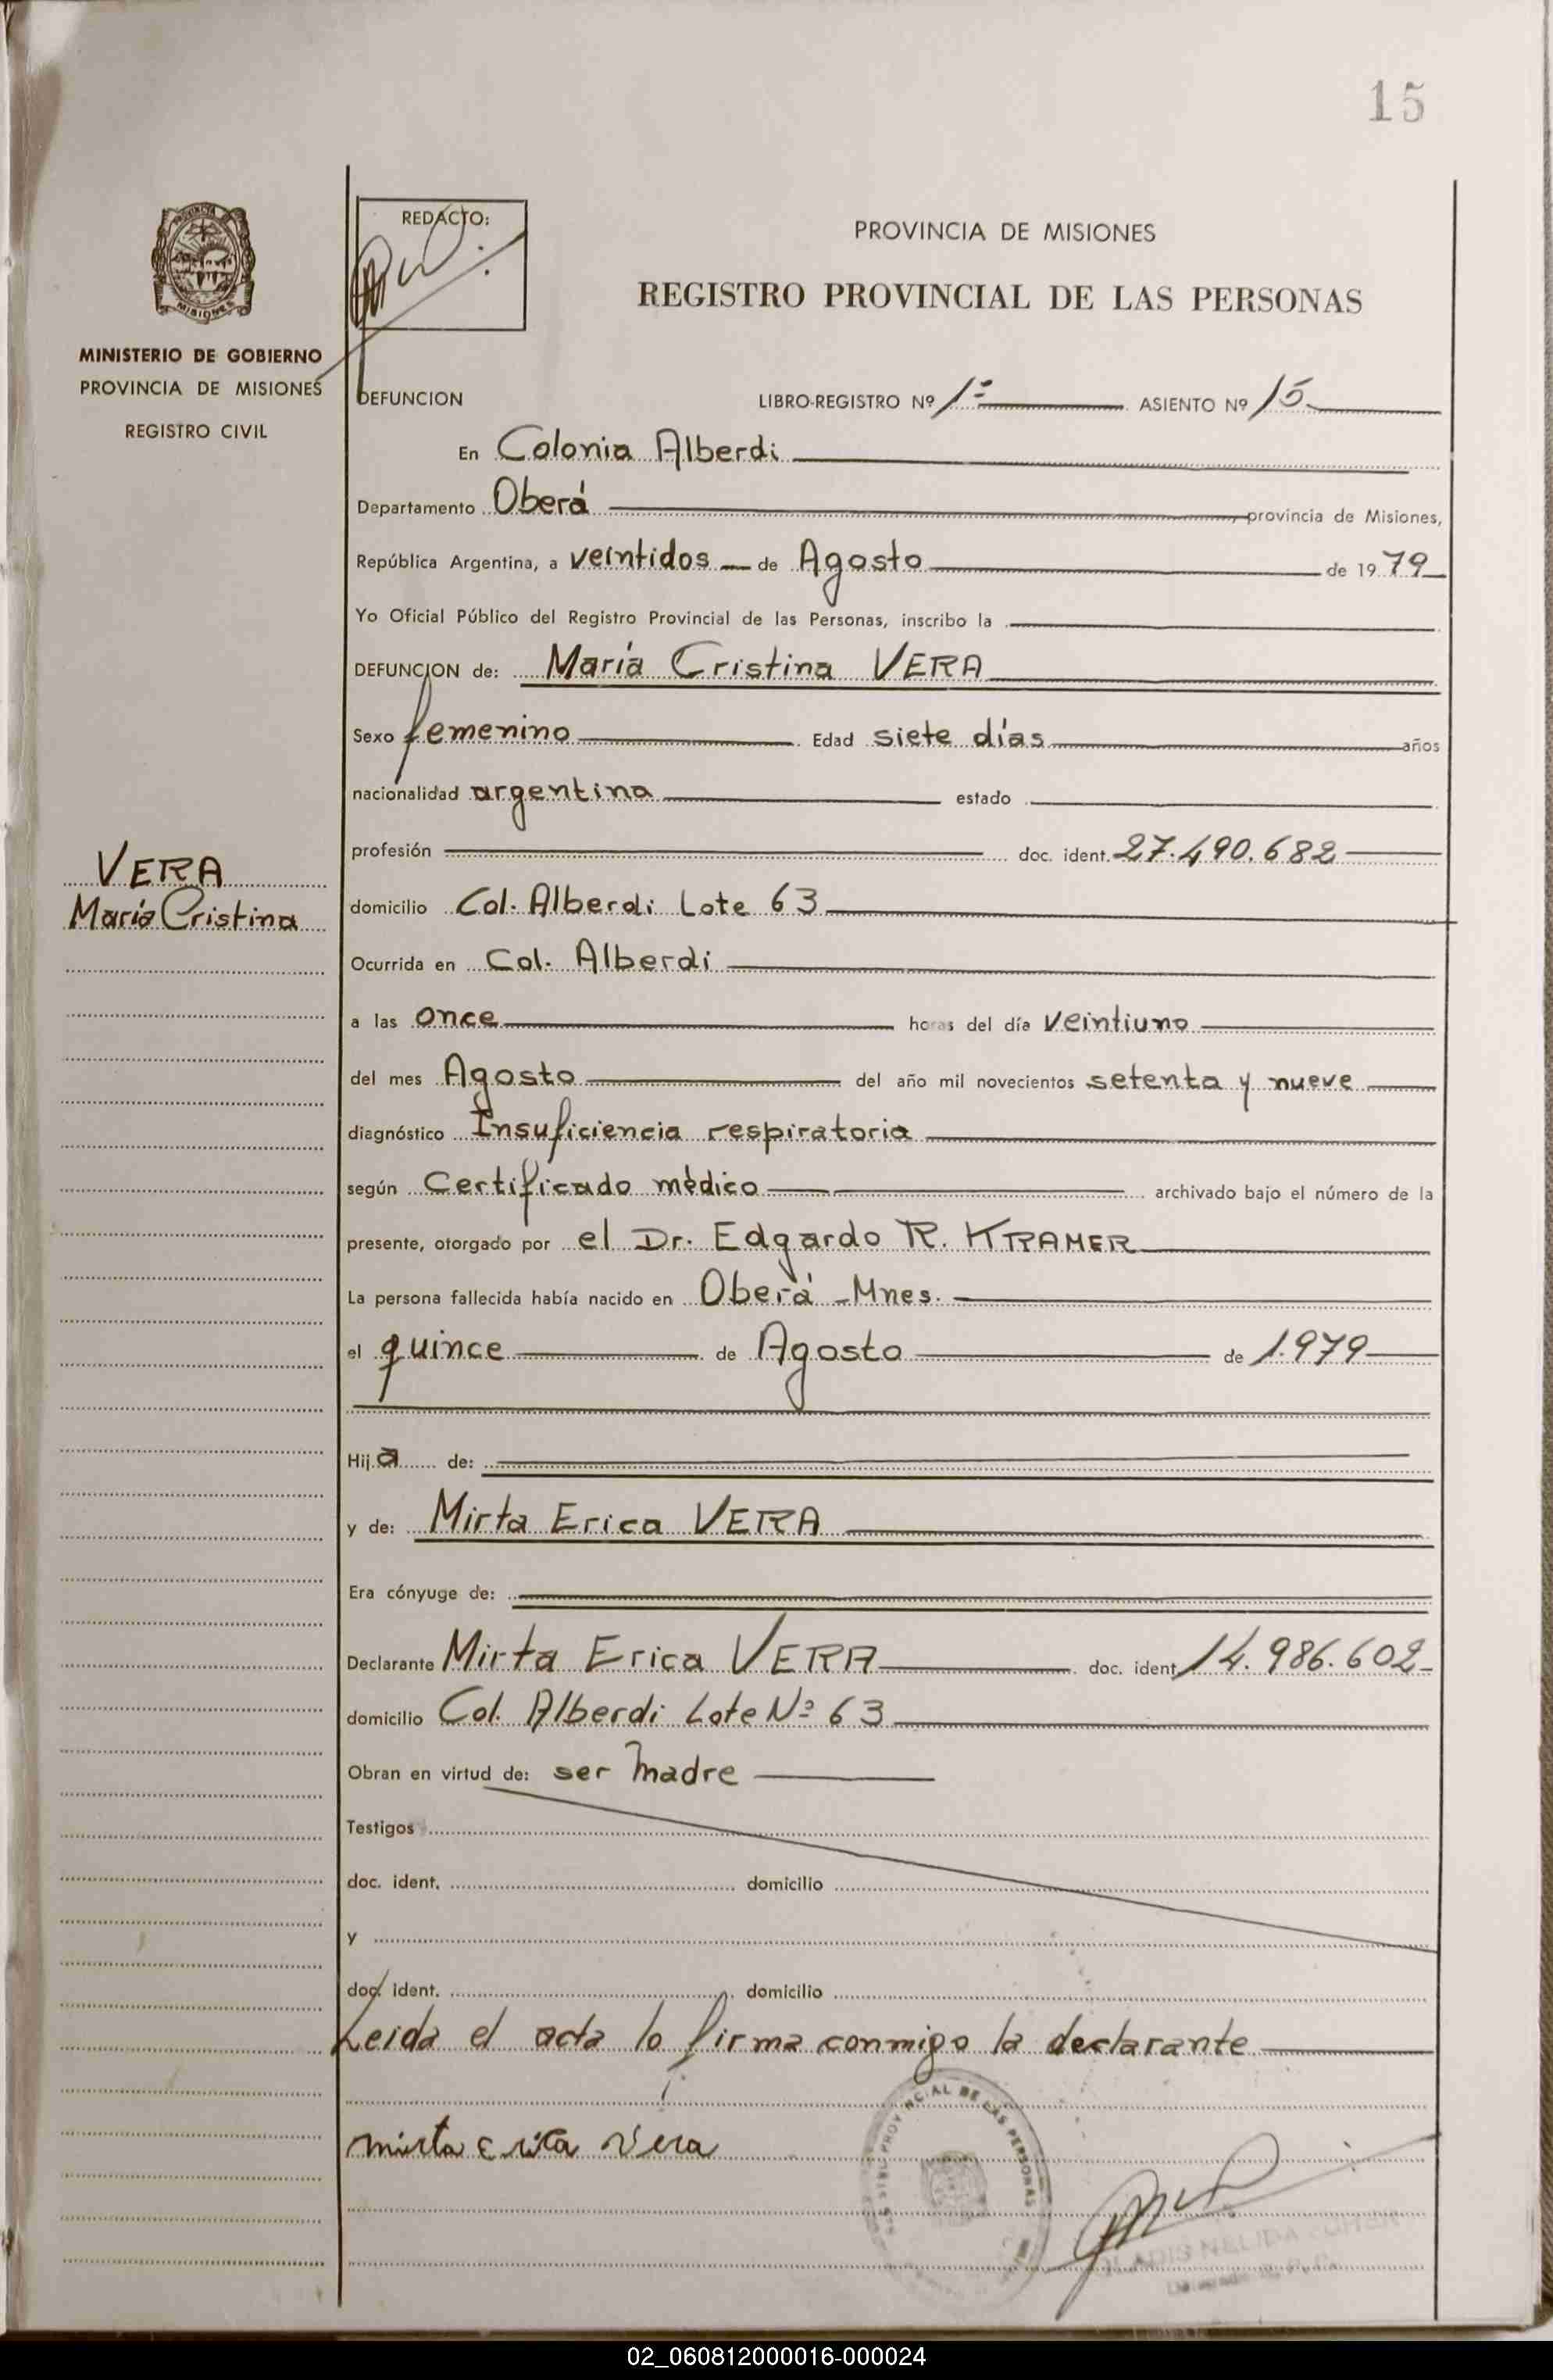 15
REDACTO:
PROVINCIA DE MISIONES
REGISTRO PROVINCIAL DE LAS PERSONAS
MINISTERIO DE GOBIERNO
PROVINCIA DE MISIONES
REGISTRO CIVIL
DEFUNCION LIBRO-REGISTRO Nº 1º ASIENTO Nº 15
En Colonia Alberdi
Departamento Oberá provincia de Misiones,
República Argentina, a veintidos de Agosto de 1979
Yo Oficial Público del Registro Provincial de las Personas, inscribo la
DEFUNCION de: María Cristina VERA
Sexo femenino Edad siete días años
nacionalidad argentina estado
profesión doc. ident. 27.490.682
VERA
María Cristina
domicilio Col. Alberdi Lote 63
Ocurrida en Col. Alberdi
a las once horas del día veintiuno
del mes Agosto del año mil novecientos setenta y nueve
diagnóstico Insuficiencia respiratoria
según Certificado médico archivado bajo el número de la
presente, otorgado por el Dr. Edgardo R. KRAMER
La persona fallecida había nacido en Oberá - Mnes.
el quince de Agosto de 1.979
Hija de:
y de: Mirta Erica VERA
Era cónyuge de:
Declarante Mirta Erica VERA doc. ident. 14.986.602
domicilio Col. Alberdi Lote Nº 63
Obran en virtud de: ser madre
Testigos
doc. ident. domicilio
y
doc. ident. domicilio
Leida el acta lo firma conmigo la declarante
mirta erica vera
PROVINCIAL DE LAS PERSONAS
NELIDA
02_060812000016-000024